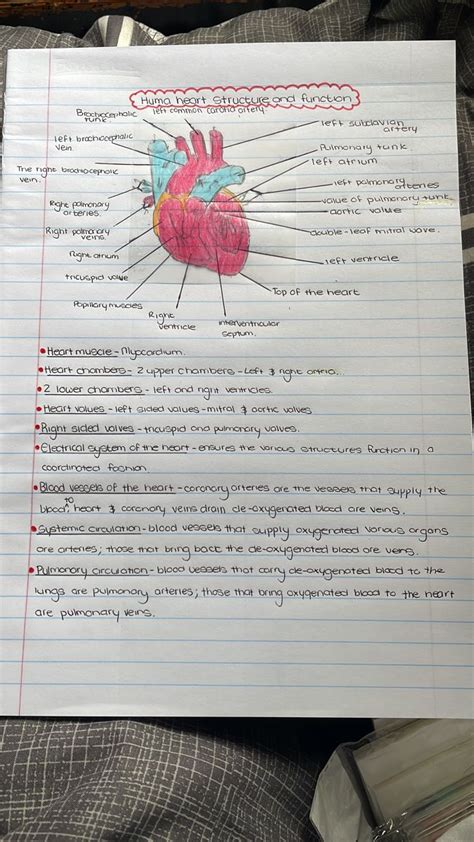 Huma heart Structure and function
Brachiocephalic
tunk
left common carotid artery.
left subclavian
artery
left brachiocephalic
vein.
Pulmonary tunk
left atrium
The right brachiocephalic
vein.
left pulmonary
arteries
valve of pulmonary tunk
aortic valve
Right pulmonary
arteries.
double-leaf mitral wave.
Right pulmonary
veins.
Right atrium
left ventricle
tricuspid valve
Top of the heart
Papillary muscles
Right
ventricle
interventricular
septum.
• Heart muscle - Myocardium.
• Heart chambers - 2 upper chambers - Left & right atria.
• 2 lower chambers - left and right ventricles.
• Heart valves - left sided valves - mitral & aortic valves
• Right sided valves - tricuspid and pulmonary valves.
• Electrical system of the heart - ensures the various structures function in a
coordinated fashion.
• Blood vessels of the heart - coronary arteries are the vessels that supply the
blood to heart & coronary veins drain de-oxygenated blood are veins.
• Systemic circulation - blood vessels that supply oxygenated various organs
are arteries; those that bring back the de-oxygenated blood are veins.
• Pulmonary circulation - blood vessels that carry de-oxygenated blood to the
lungs are pulmonary arteries; those that bring oxygenated blood to the heart
are pulmonary veins.